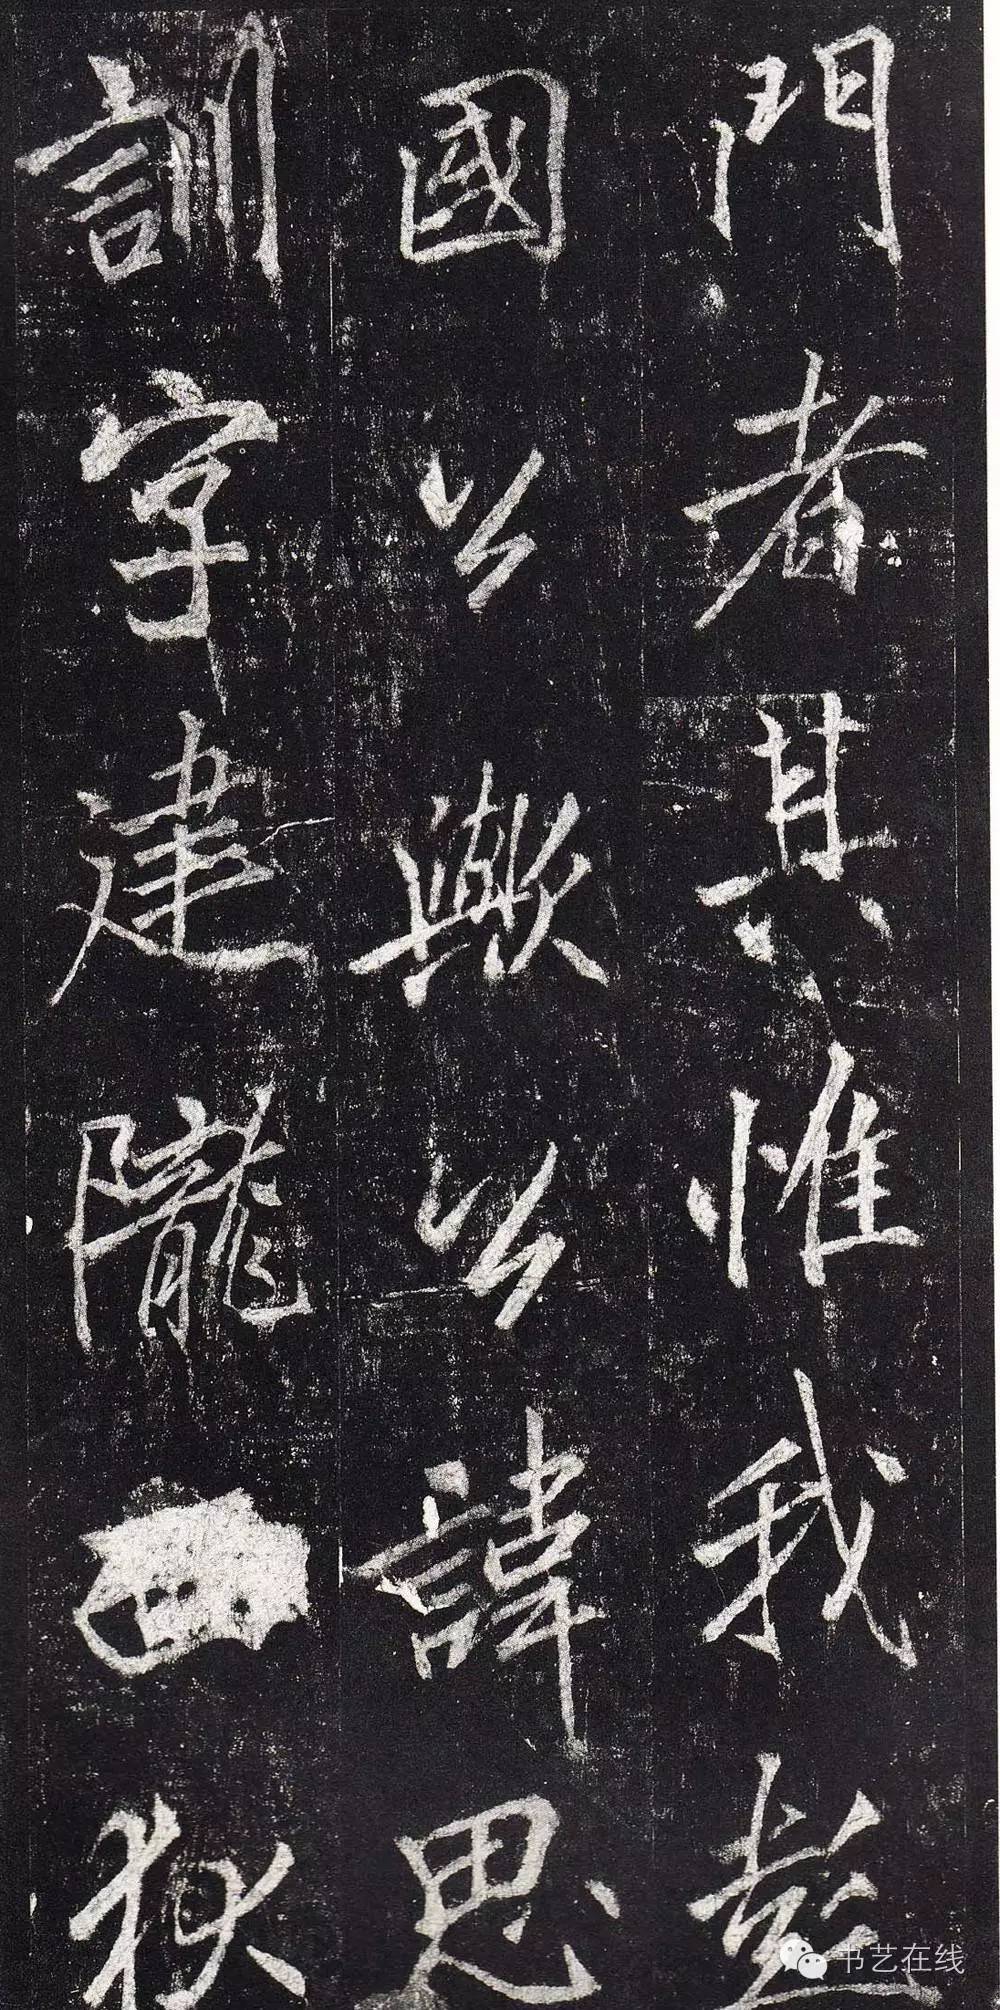 門者其惟我彭
國公歟公諱思
訓字建隴狄
书艺在线